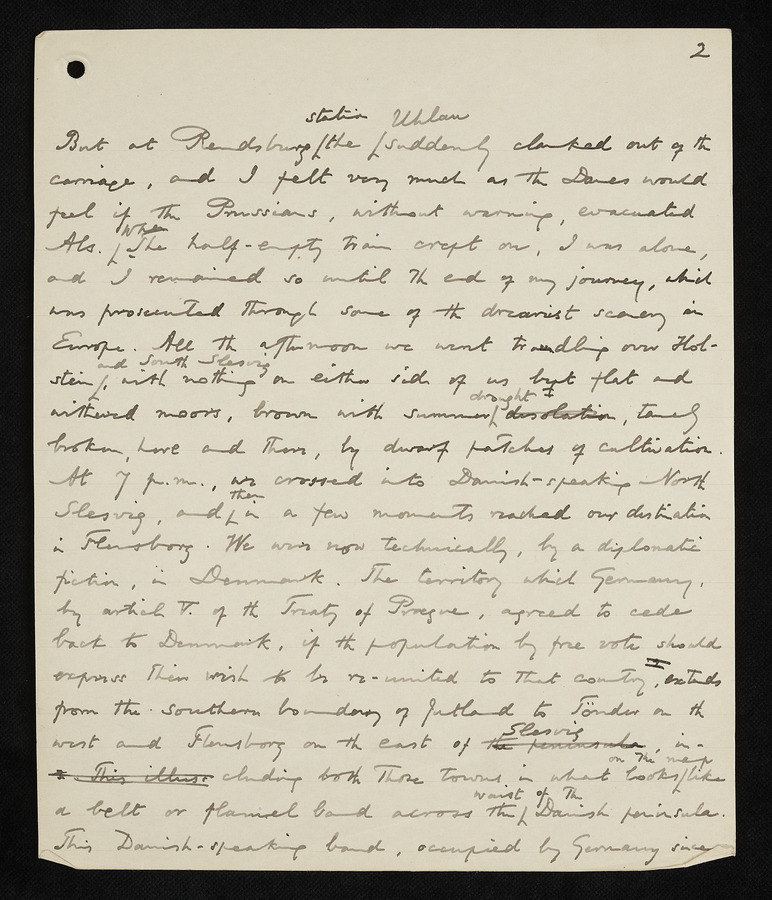 2
station Uhlan
But at Rendsburg the suddenly clanked out of the
carriage, and I felt very much as the Danes would
feel if the Prussians, without warning, evacuated
When
Als. The half-empty train crept on, I was alone,
and I remained so until the end of my journey, which
was prosecuted through some of the dreariest scenery in
Europe. All the afternoon we went trundling over Hol-
and South Slesvig
stein, with nothing on either side of us but flat and
drought
withered moors, brown with summer desolation, tamely
broken, here and there, by dwarf patches of cultivation.
At 7 p.m., we crossed into Danish-speaking North
then
Slesvig, and in a few moments reached our destination
in Flensborg. We were now technically, by a diplomatic
fiction, in Denmark. The territory which Germany,
by article V. of the Treaty of Prague, agreed to cede
back to Denmark, if the population by free vote should
express their wish to be re-united to that country, extends
from the southern boundary of Jutland to Tönder on the
Slesvig
west and Flensborg on the east of the peninsula, in-
on the map
This illus: cluding both those towns in what looks like
waist of the
a belt or flannel band across the Danish peninsula.
This Danish-speaking band, occupied by Germany since